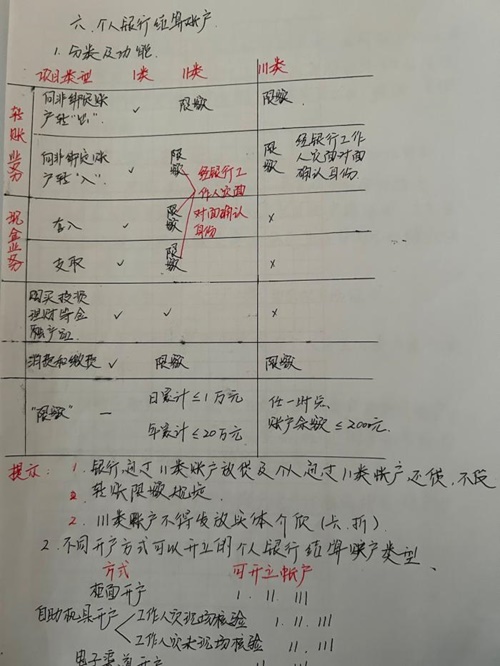 六.个人银行结算账户
1.分类及功能
项目类型 I类 II类 III类
转账业务
向非绑定账
户转“出” ✓ 限额 限额
向非绑定账
户转“入” ✓ 限额 限额 经银行工作
人员面对面
确认身份
经银行工
作人员面
对面确认
身份
现金业务
存入 ✓ 限额 ×
支取 ✓ 限额 ×
购买投资
理财等金
融产品 ✓ ✓ ×
消费和缴费 ✓ 限额 限额
“限额” —
日累计≤1万元
年累计≤20万元
任一时点
账户余额≤2000元
提示:
1.银行通过II类账户放贷及个人通过II类账户还贷,不受
转账限额规定
2.III类账户不得发放实体介质(卡、折)
2.不同开户方式可以开立的个人银行结算账户类型
方式 可开立帐户
柜面开户 I. II. III
自助机具开户
工作人员现场核验 I. II. III
工作人员未现场核验 II. III
电子渠道开户